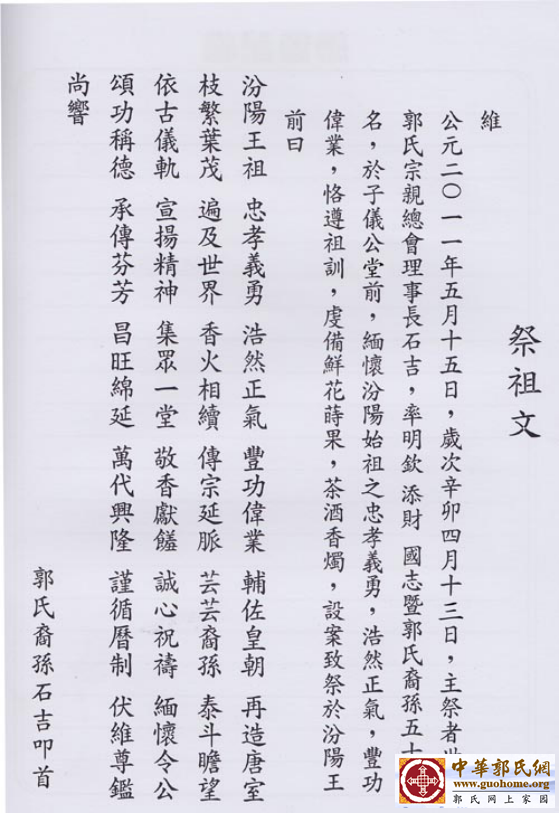 祭祖文
維
公元二〇一一年五月十五日，歲次辛卯四月十三日，主祭者世
郭氏宗親總會理事長石吉，率明欽 添財 國志暨郭氏裔孫五十
名，於子儀公堂前，緬懷汾陽始祖之忠孝義勇，浩然正氣，豐功
偉業，恪遵祖訓，虔備鮮花蒔果，茶酒香燭，設案致祭於汾陽王
前曰
汾陽王祖 忠孝義勇 浩然正氣 豐功偉業 輔佐皇朝 再造唐室
枝繁葉茂 遍及世界 香火相續 傳宗延脈 芸芸裔孫 泰斗瞻望
依古儀軌 宣揚精神 集眾一堂 敬香獻饈 誠心祝禱 緬懷令公
頌功稱德 承傳芬芳 昌旺綿延 萬代興隆 謹循曆制 伏維尊鑑
尚響
郭氏裔孫石吉叩首
中華郭氏網
www.guohome.org
郭氏网上家园